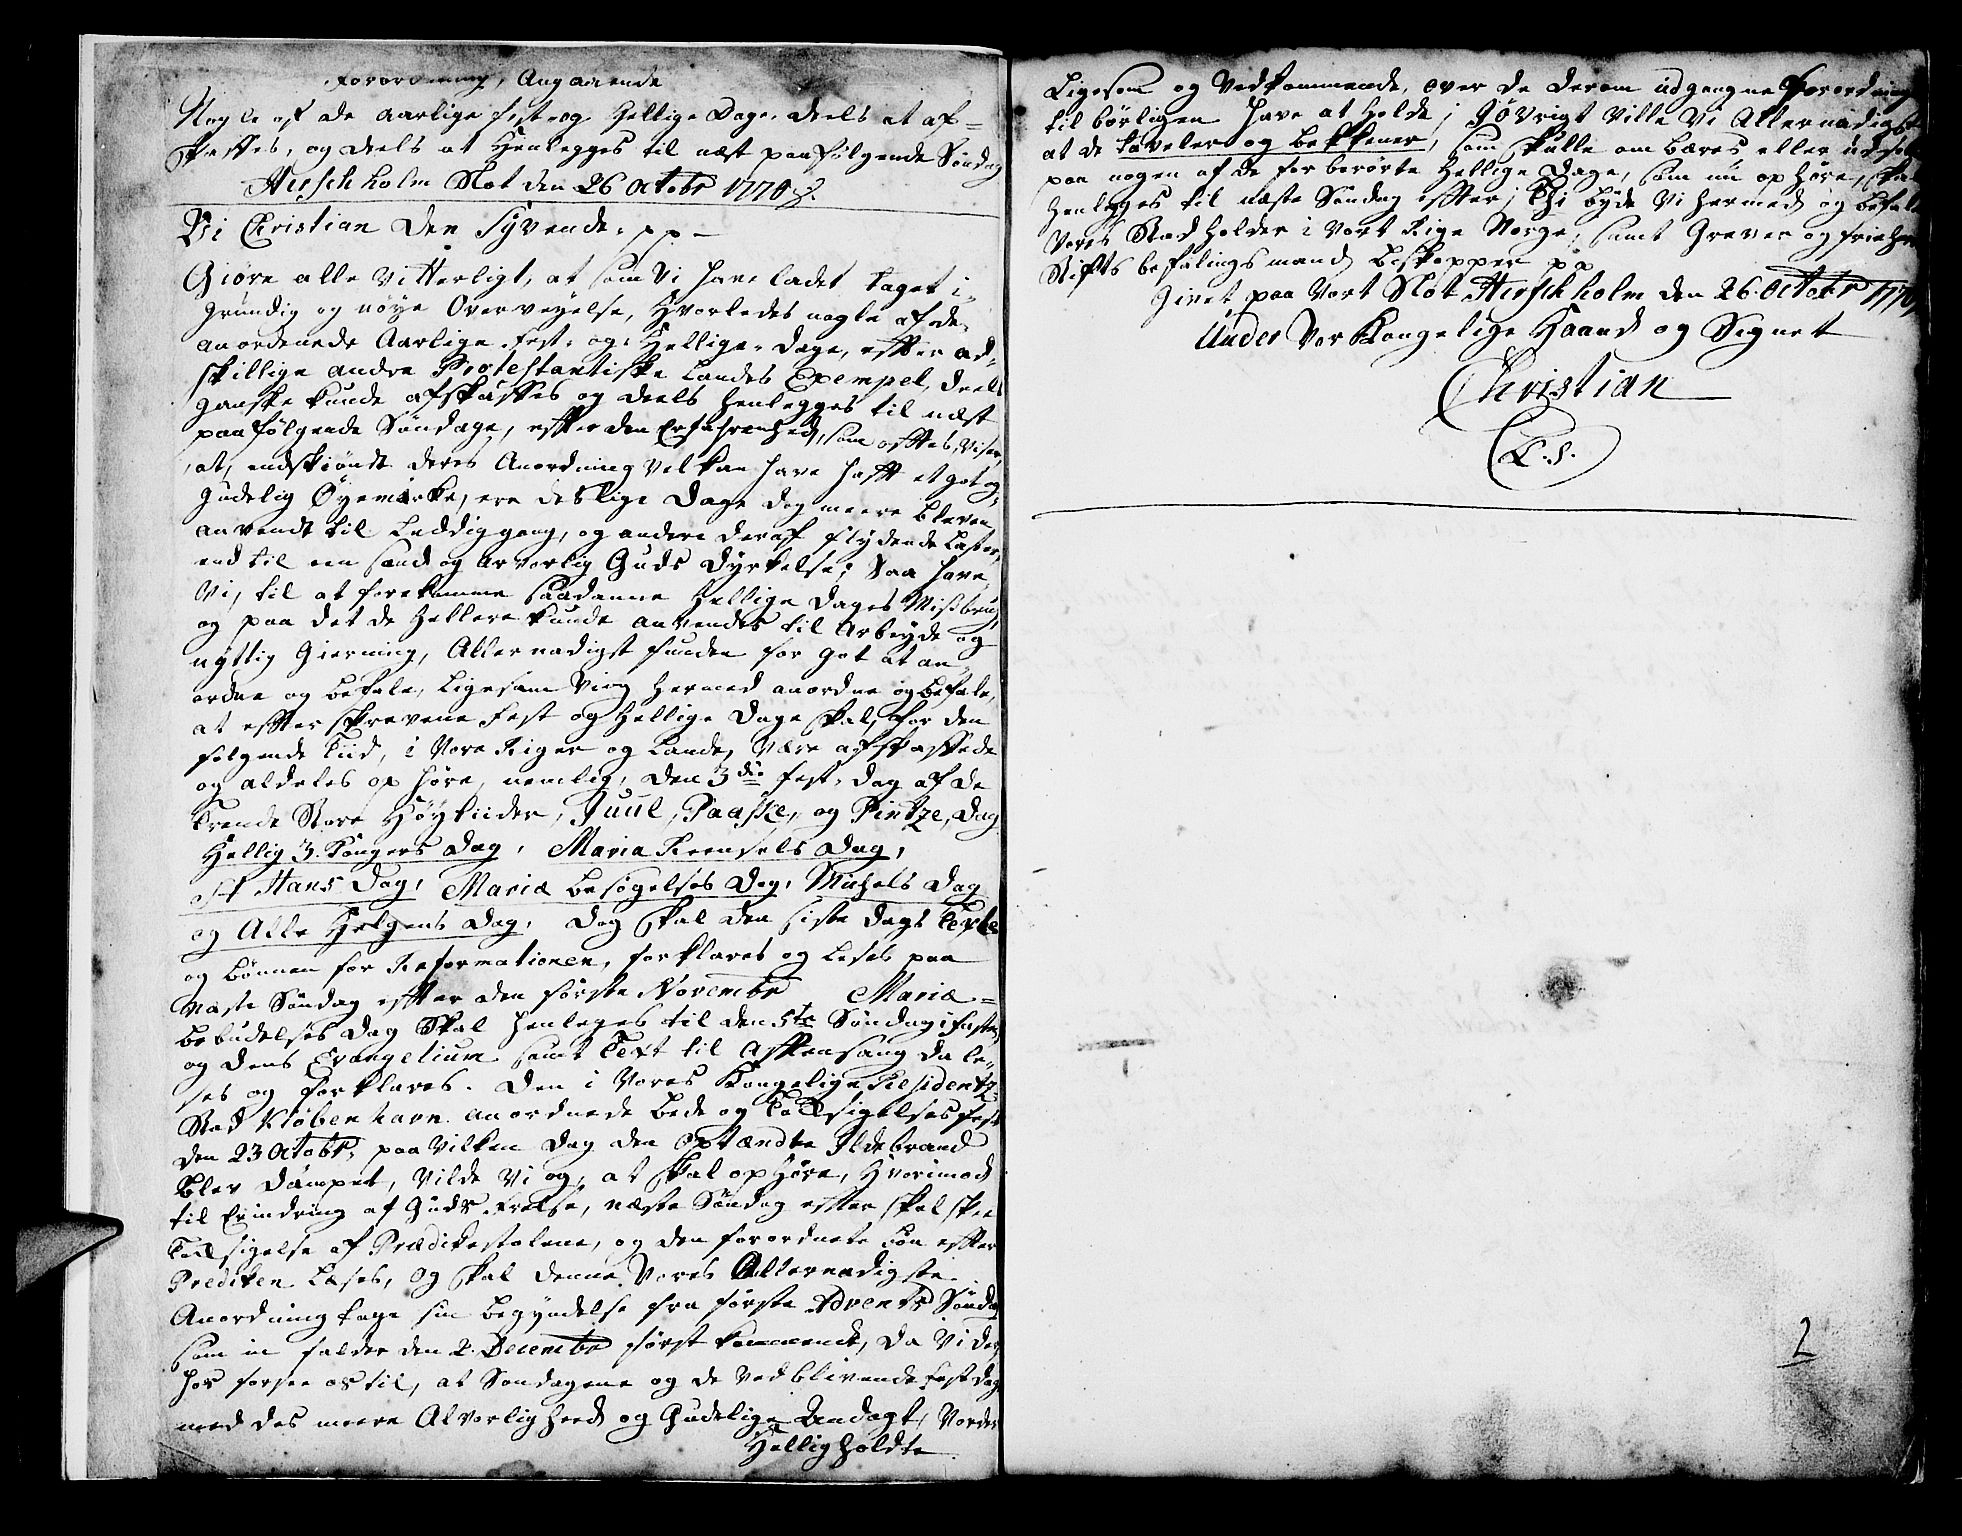 Forordning, Angaaende
Nogle af de Aarlige fest- og Hellige Dage, deels at af-
skaffes, og deels at Henlegges til næst paafølgende Søndag
Hirschholm Slot den 26 Octobr 1770.
Vi Christian den Syvende. pp
Giøre alle Vitterligt, at som Vi have ladet taget i
Grundig og nøye Overveyelse, Hvorledes nogle af de
anordnede Aarlige fest- og Hellige Dage, efter ad-
skillige andre Protestantiske Landes Exempel, deels
ganske kunde afskaffes og deels henlegges til næst
paafølgende Søndage, efter den Erfahrenhed, som oftes Viser,
at, endskiøndt deres Anordning vel kan have haft et got og
Gudelig Øyemærke, ere deslige Dage dog meere bleven
anvendt til Leddiggang, og andere deraf flydende Laster,
end til een sand og Arvorlig Guds Dyrkelse; Saa have
Vi, til at forekomme saadanne Hellige Dages Misbrug,
og paa det de hellere kunde anvendes til Arbeyde og
nyttig Gierning, Allernadigst funden for got at an-
ordne og befale, Ligesom Vi og hermed anordne og befale,
at efterskrevene Fest og Hellige Dage skal, for den
følgende Tiid, i Vore Riger og Lande, være afskaffede
og aldeles ophøre, nemlig, den 3die fest-dag af de
trende Store Høytiider, Juul, Paaske, og Pintze, Dag
Hellig 3. Kongers Dag, Maria Reenselsdag,
St Hans Dag, Mariæ Besøgelses Dag, Michels Dag
og Alle Helgens Dag, Dog skal den siste dags Texte
og Bønnen for Reformationen, forklares og Leses paa
Næste Søndag efter den første Novembr Mariæ
Bebudelses Dag Skal henleges til den 5te Søndag i fasten
og dens Evangelium samt Text til Aftensang da le-
ses og forklares. Den i Vores Kongelige Residentz
Stad Kiøbenhavn anordnede Bede og Taksigelses fest
den 23 Octobr, paa Vilken Dag den Optændte Ildebrand
Blev dæmpet, Vilde Vi og, at skal ophøre, Hvorimod
til Erindring af Guds Frelse, næste Søndag efter skal skee
Taksigelse af Prædikestolene, og den forordnete Bøn efter
Prediken Læses, og skal denne Vores Allernadigste
Anordning tage sin begyndelse fra første Advents Søndag
som in falder den 2. Decembr først kommende, da Vi der
hos forsee os til, at Søndagene og de Ved blivende fest dag
med des meere Alvorlighed og Gudelige Andagt, Vorder
Helligholdte
Ligesom og Vedkommende, over de derom udgangne Forordninger
tilbørligen have at Holde; I øvrigt Ville Vi Allernadigst
at de tavler og bekkener, som skulle om bæres eller udsettes
paa nogen af de forberørte Hellige Dage, som nu ophøre, skal
henlegges til næste Søndag efter; Thi byde Vi hermed og befale
Vores Stadholder i Vort Rige Norge, samt Grever og frieherrer
Stiftsbefalingsmænd, Biskopper pp
Givet paa Vort Slot Hirschholm den 26. Octobr 1770
Under Vor Kongelige Haand og Signet
Christian
L. S.
2